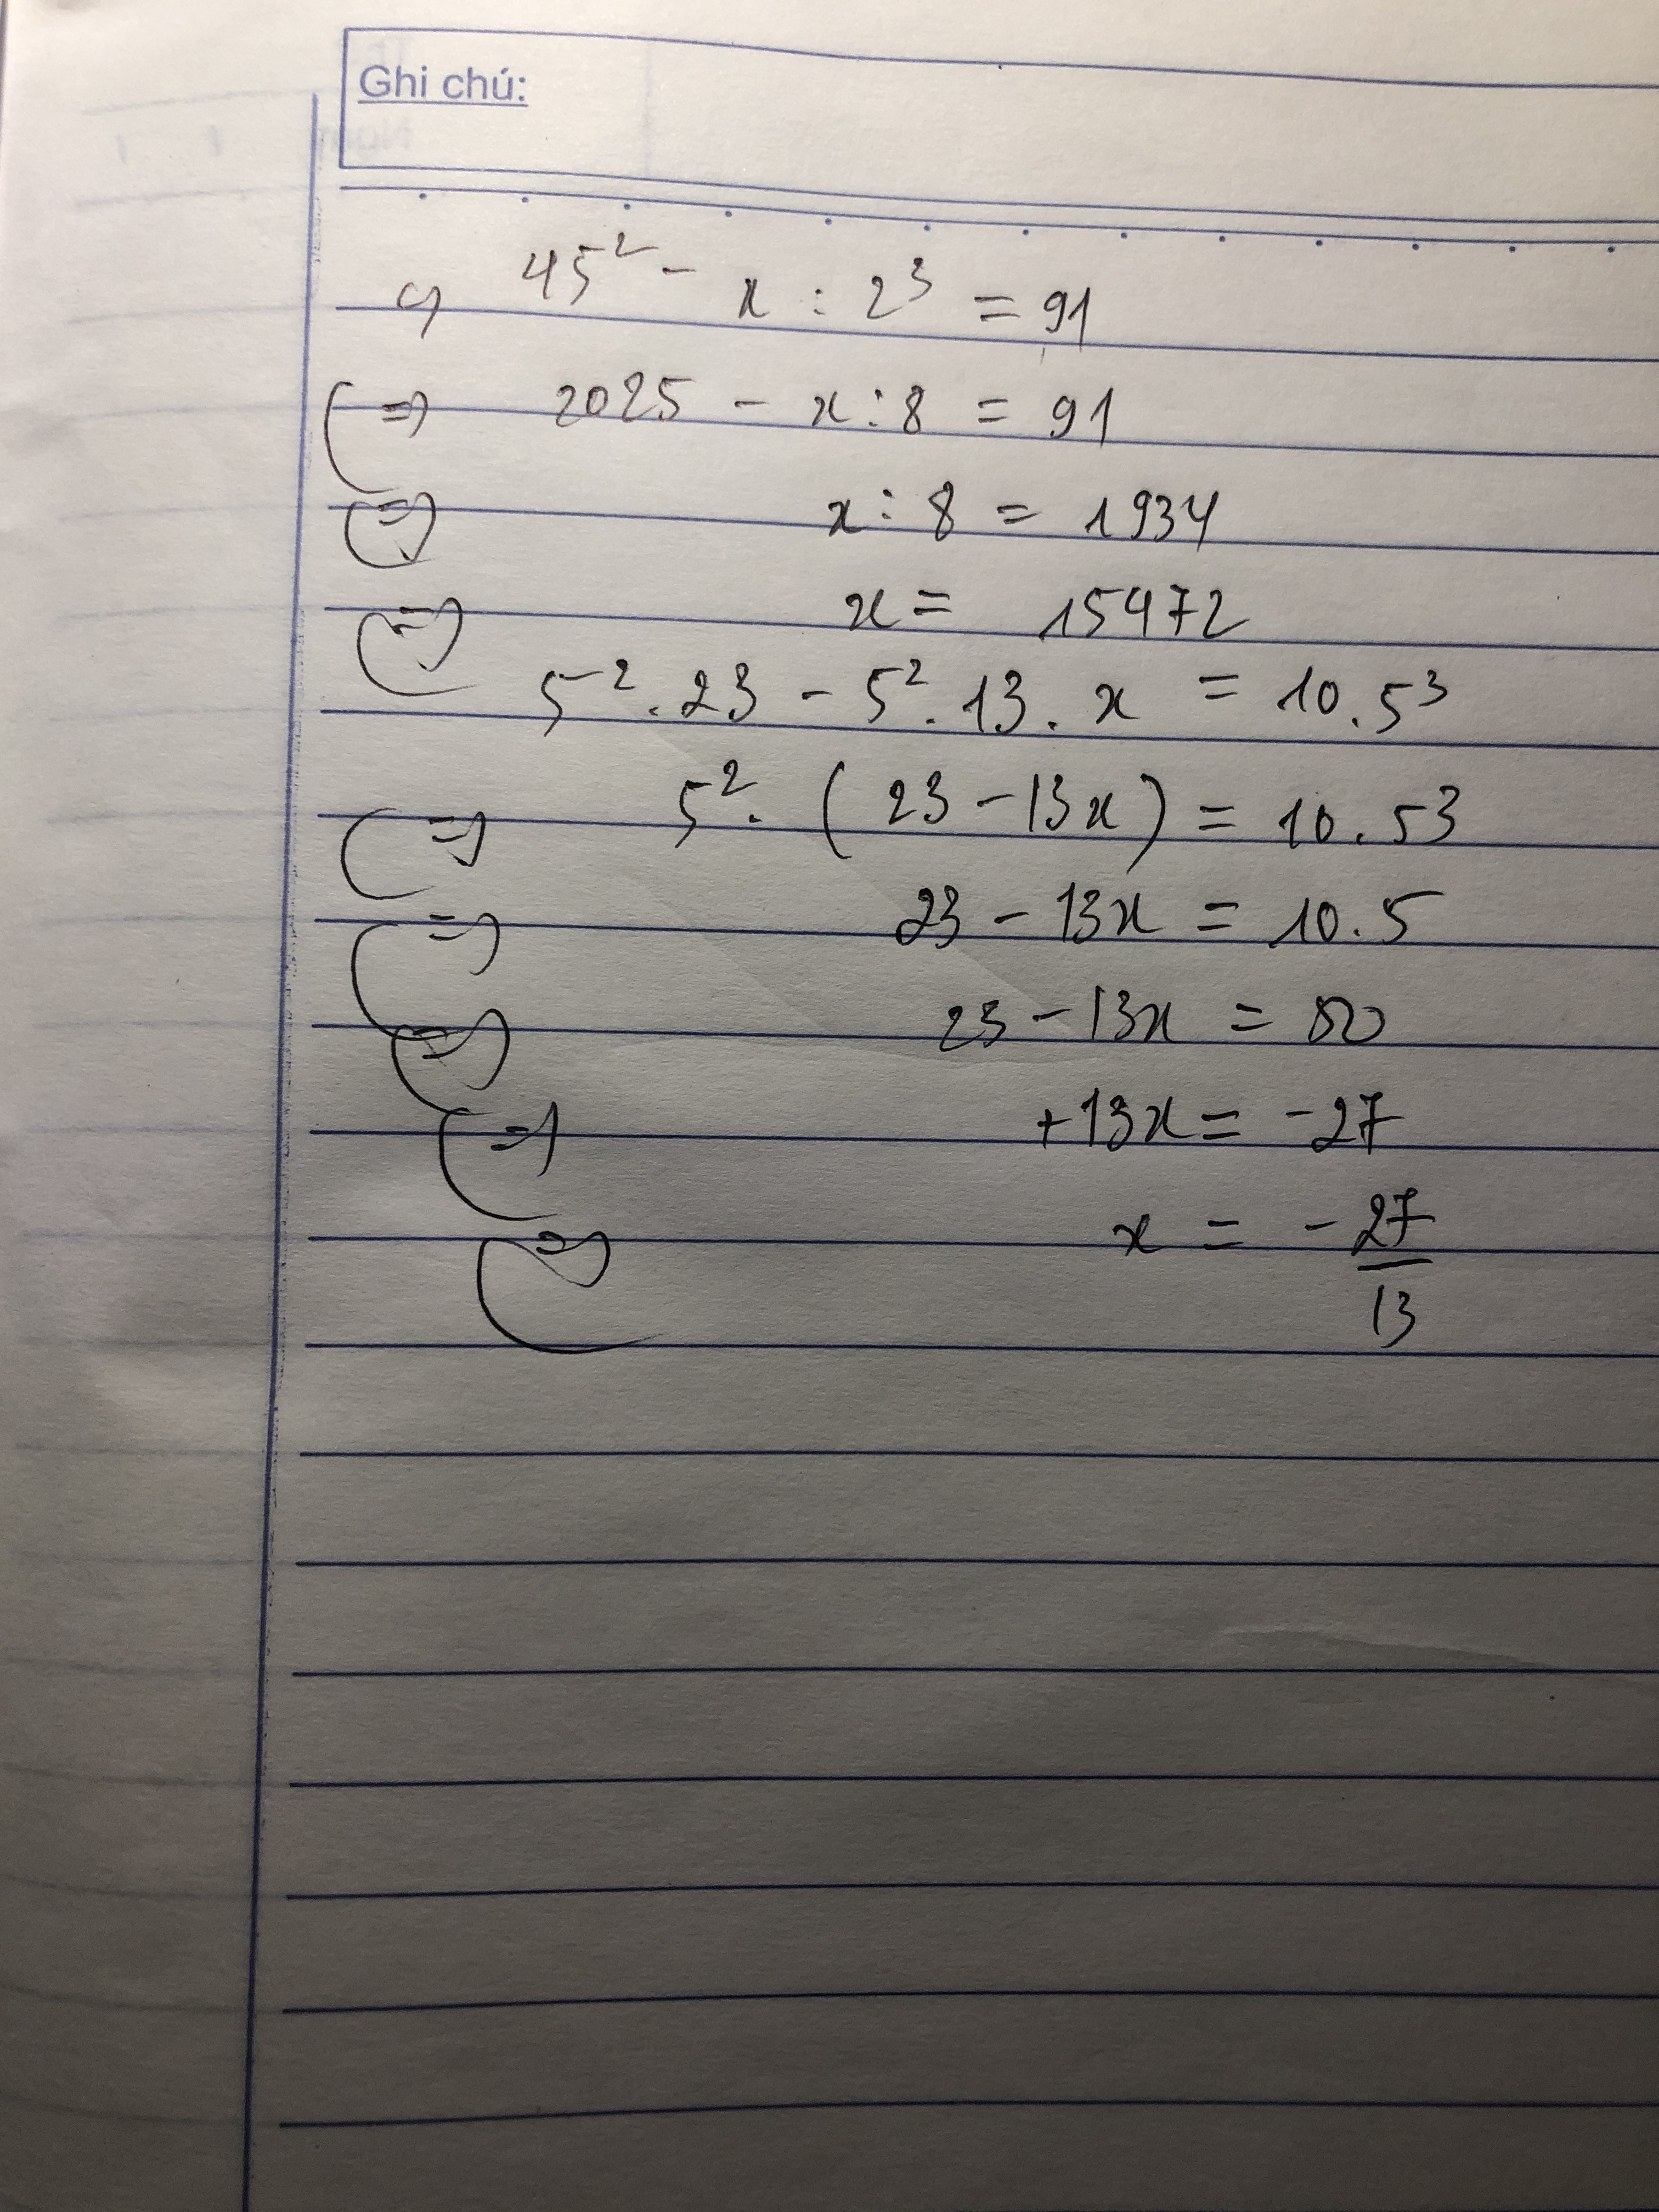 Ghi chú:
c) 45² - x : 2³ = 91
(=) 2025 - x : 8 = 91
(=) x : 8 = 1934
(=) x = 15472
5² . 23 - 5² . 13 . x = 10 . 5³
(=) 5² . (23 - 13x) = 10 . 5³
(=) 23 - 13x = 10 . 5
(=) 23 - 13x = 50
(=) +13x = -27
(=) x = -27/13